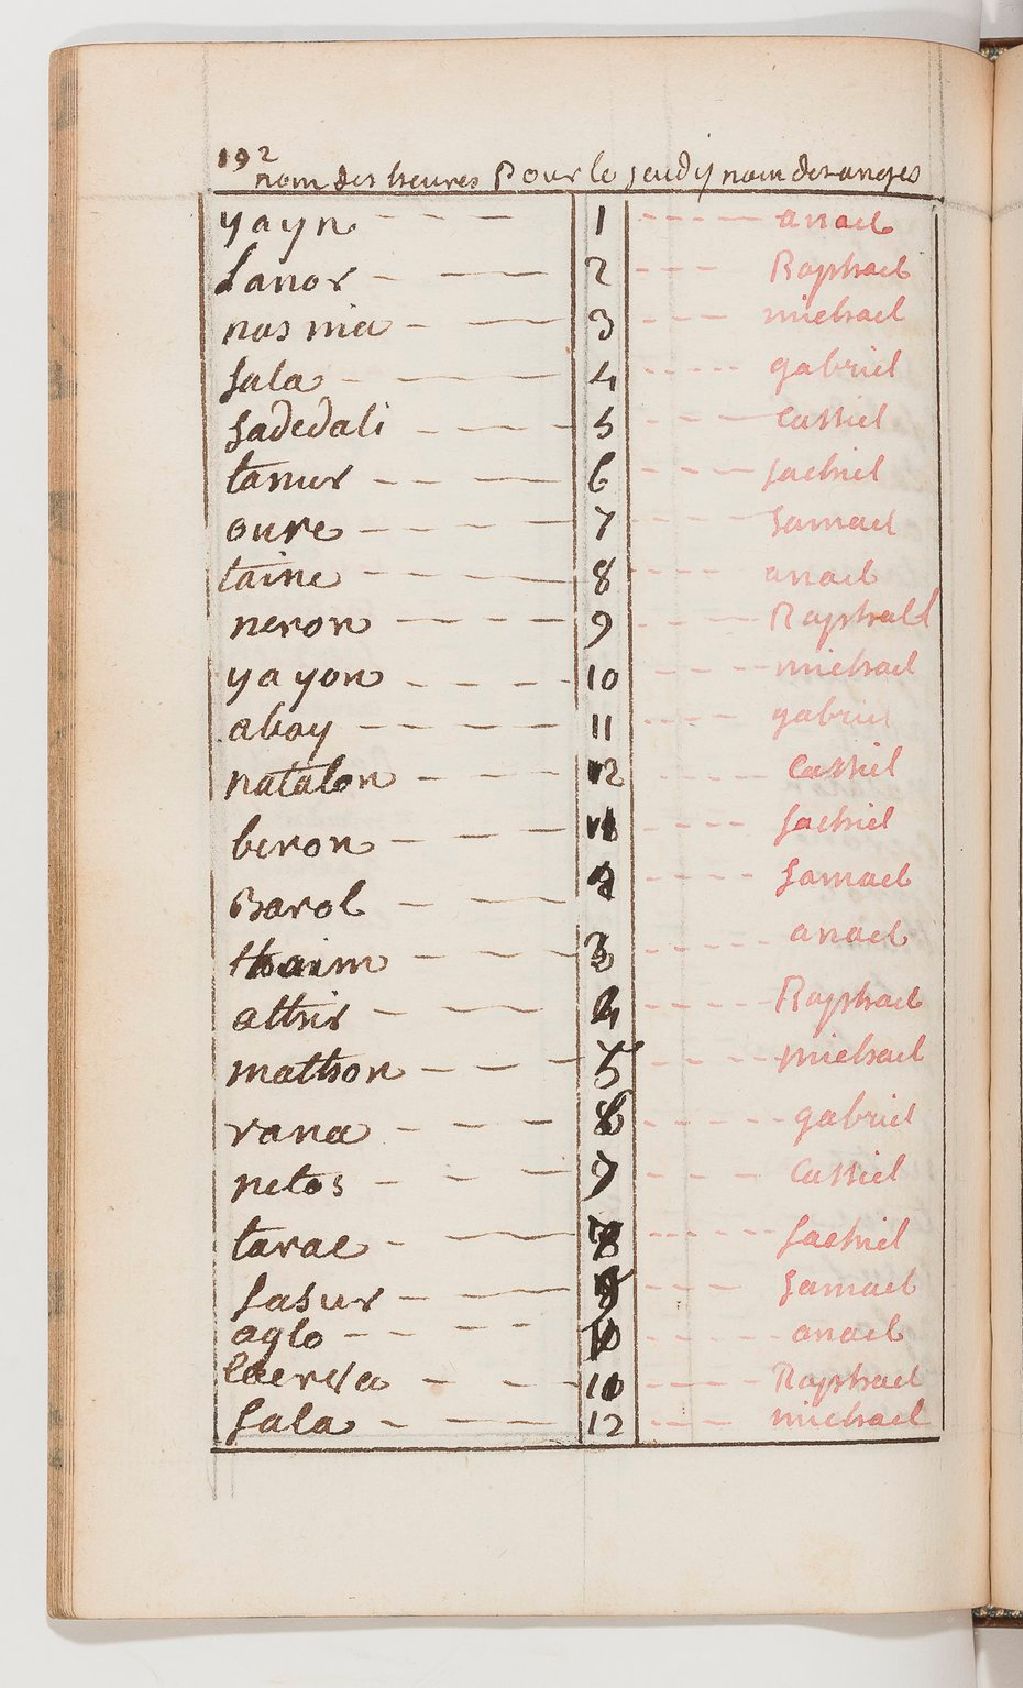 192
nom des heures Pour le jeudy nom des anges
yayn 1 anael
Janor 2 Raphael
nasnia 3 michael
sala 4 gabriel
sadedali 5 Cassiel
tamur 6 sachiel
oure 7 samael
taine 8 anael
neron 9 Raphael
yayon 10 michael
abay 11 gabriel
natalon 12 Cassiel
beron 1 sachiel
Barol 2 samael
thaim 3 anael
athir 4 Raphael
mathon 5 michael
rana 6 gabriel
netos 7 Cassiel
tarae 8 sachiel
sasur 9 samael
aglo 10 anael
Raphael
sala 12 michael